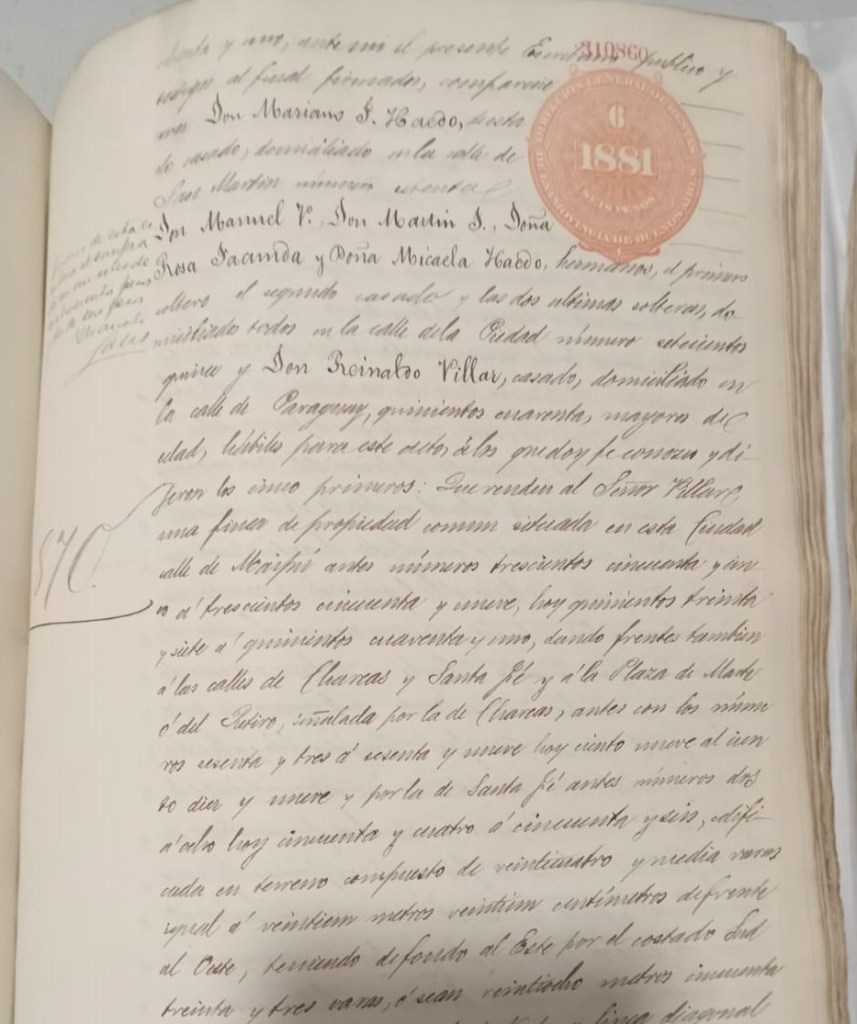 310860
y uno, ante mi el presente Escribano publico y
testigos al final firmados, comparecie
ron Don Mariano J. Haedo, de esta
do casado, domiciliado en la calle de
San Martin número setenta
6
1881
SEIS PESOS
PROVINCIA DE BUENOS AIRES
Don Manuel V., Don Martin J., Doña
Rosa Facunda y Doña Micaela Haedo, hermanos, el primero
soltero el segundo casado y las dos ultimas solteras, do-
miciliados todos en la calle de la Piedad número setecientos
quince y Don Reinaldo Villar, casado, domiciliado en
la calle de Paraguay, quinientos cuarenta, mayores de
edad, hábiles para este acto, á los que doy fe conozco y di-
jeron los cinco primeros: Que venden al Señor Villar
una finca de propiedad comun situada en esta Ciudad
calle de Maipú antes números trescientos cincuenta y cin
co á trescientos cincuenta y nueve, hoy quinientos treinta
y siete á quinientos cuarenta y uno, dando frentes tambien
á las calles de Charcas y Santa Fé y á la Plaza de Marte
ó del Retiro, señalada por la de Charcas, antes con los núme
ros sesenta y tres á sesenta y nueve hoy ciento nueve al cien
to diez y nueve y por la de Santa Fé antes números dos
á ocho hoy cincuenta y cuatro á cincuenta y seis, edifi-
cada en terreno compuesto de veinticuatro y media varas
igual á veintiun metros veintiun centímetros de frente
al Oeste, teniendo de fondo al Este por el costado Sud
treinta y tres varas, ó sean veintiocho metros cincuenta
linea diagonal